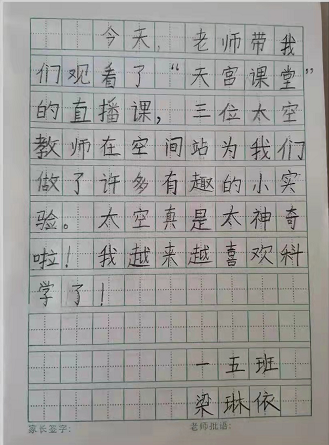 今天，老师带我
们观看了“天宫课堂”
的直播课，三位太空
教师在空间站为我们
做了许多有趣的小实
验。太空真是太神奇
啦！我越来越喜欢科
学了！
一五班
梁琳依
家长签字： 老师批语：